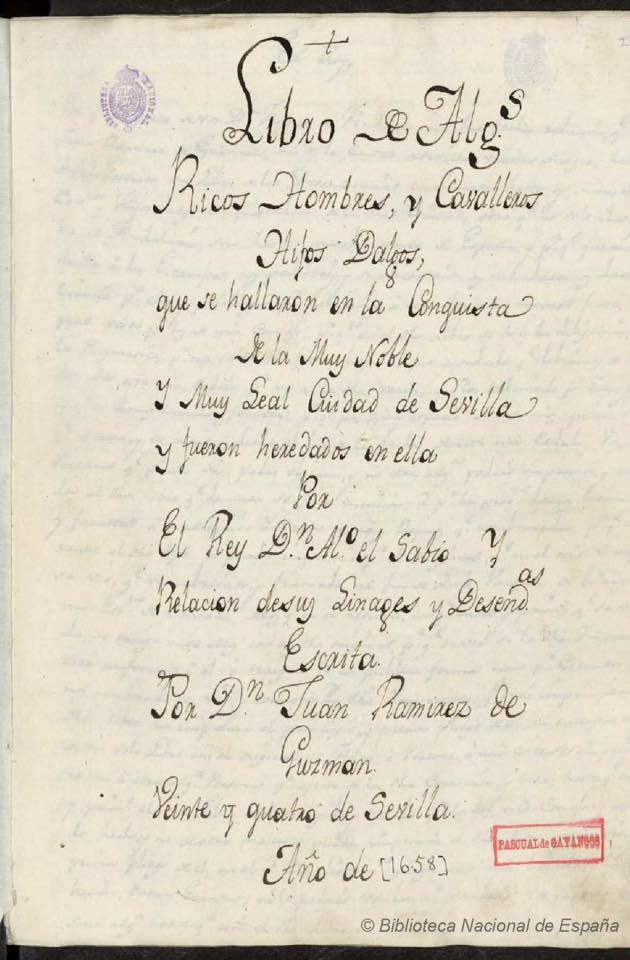 +
Libro de Alg.s
Ricos Hombres, y Cavalleros
Hijos Dalgos,
que se hallaron en la Conquista
de la Muy Noble
Y Muy Leal Ciudad de Sevilla
y fueron heredados en ella
Por
El Rey D.n Al.o el Sabio Y
Relacion desus Linages y Desend.as
Escrita.
Por D.n Juan Ramirez de
Guzman.
Veinte y quatro de Sevilla.
Año de [1658]
PASCUAL de GAYANGOS
© Biblioteca Nacional de España